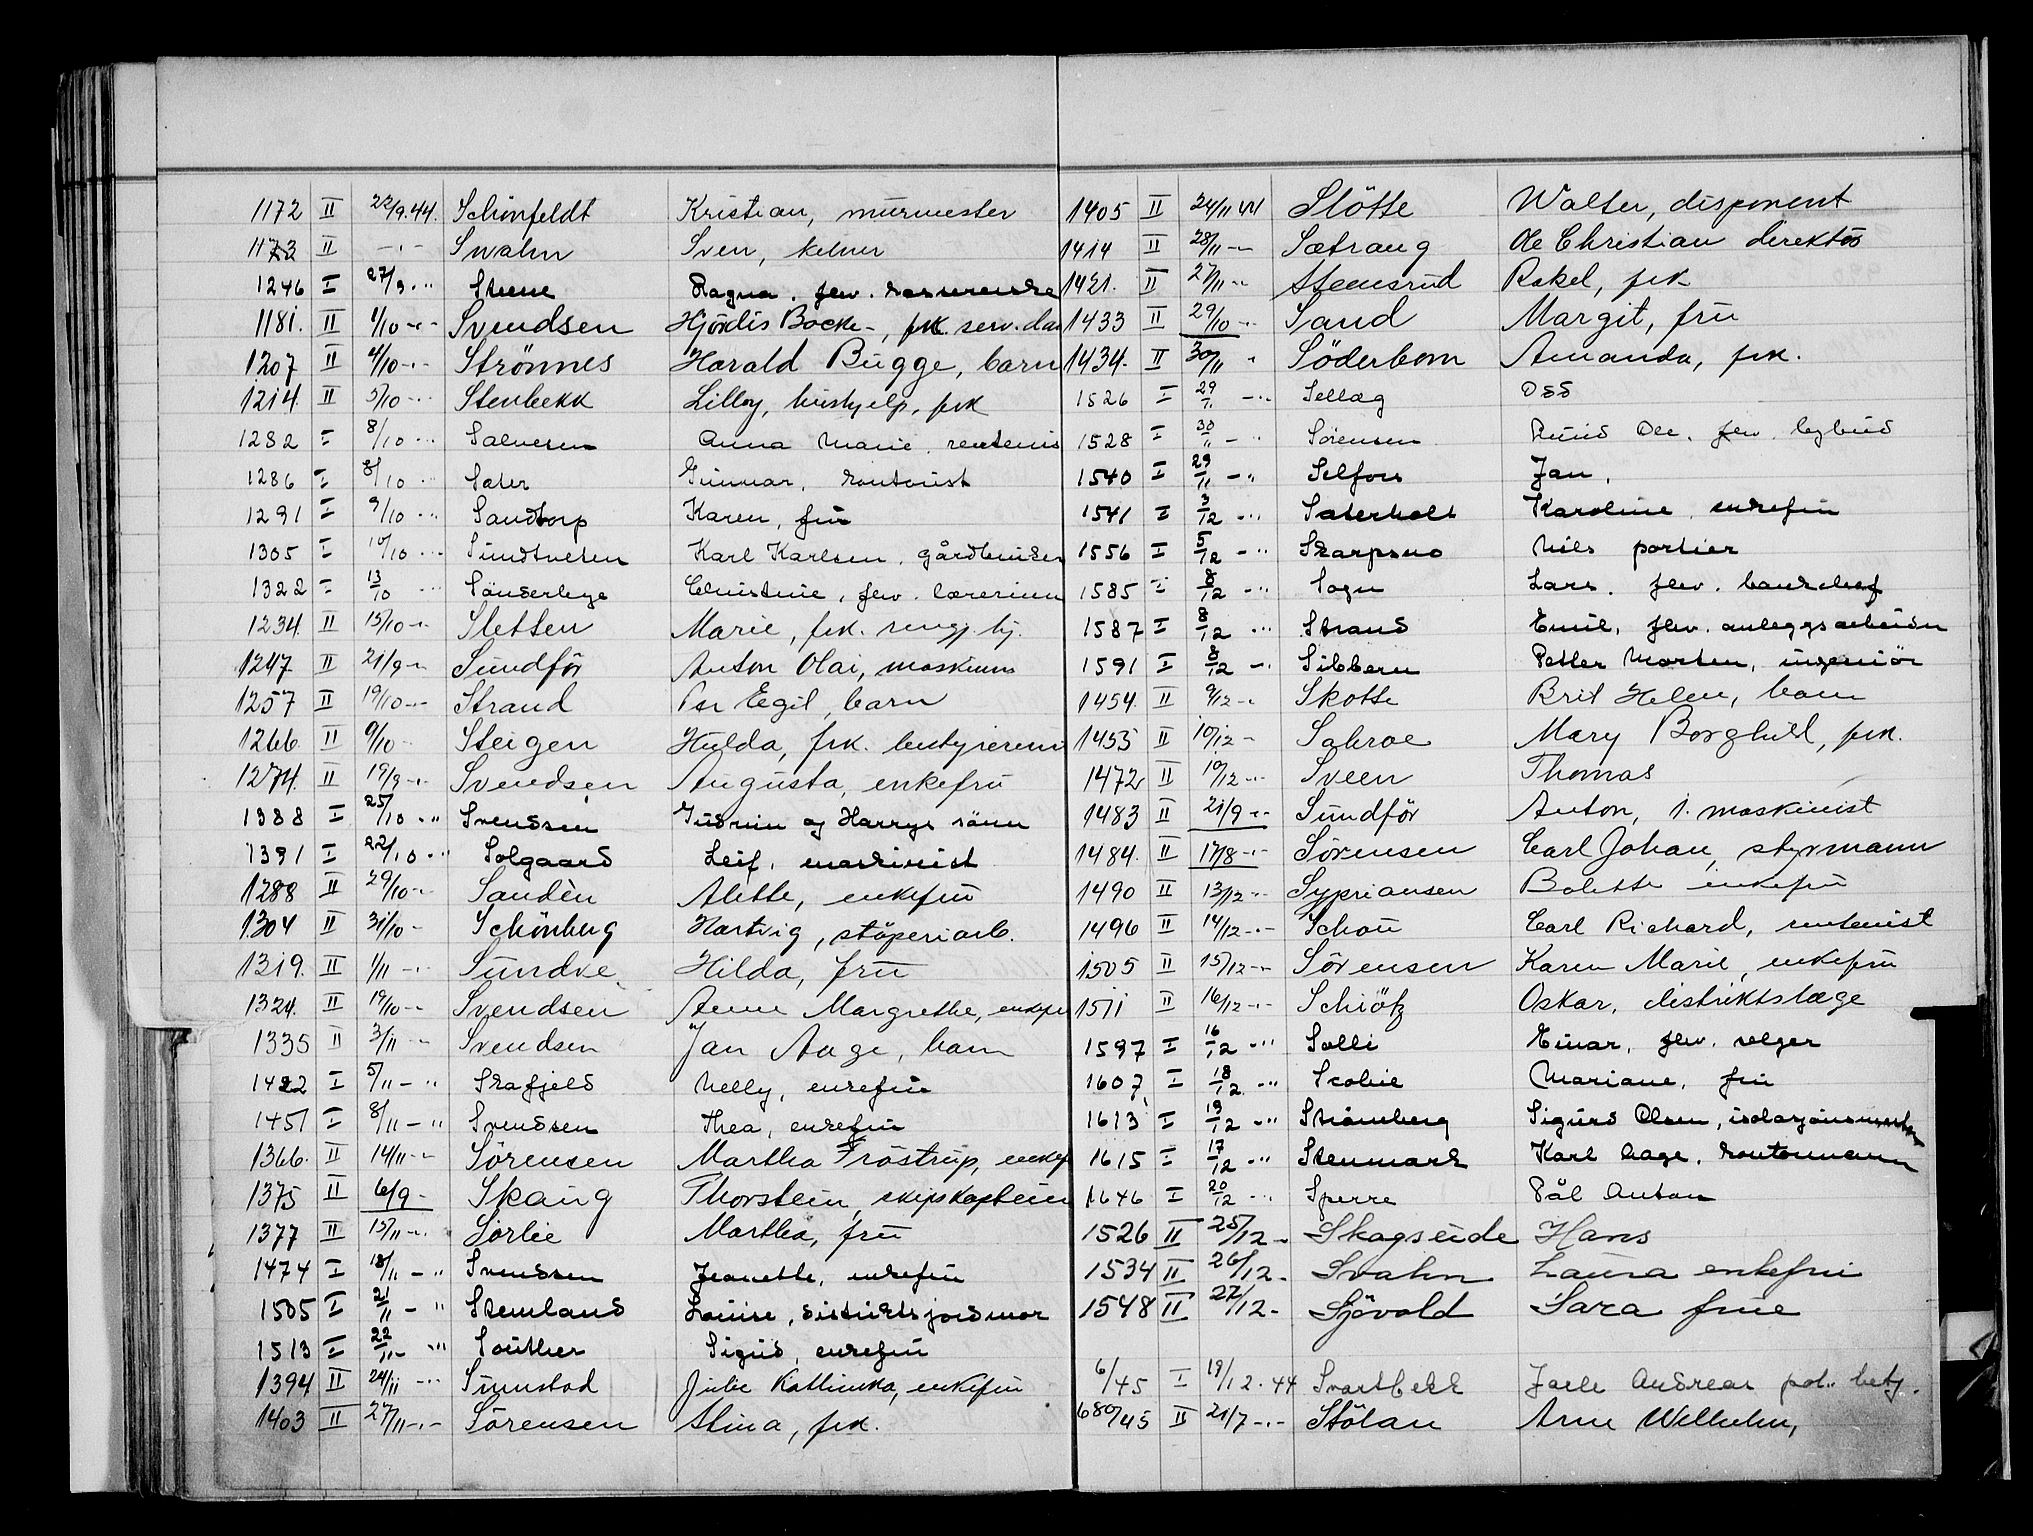 1172 II 22/9.44. Schönfeldt Kristian, murmester
1173 II -"- Swahn Sven, kelner
1246 I 27/9 -"- Steene Ragna, fhv.
1181. II 1/10 -"- Svendsen Hjördis Bocke-, frk. serv. dam
1207 II 4/10 -"- Strönnes Harald Bugge, barn
1214. II 5/10 -"- Stenbekk Lilly, hushjelp, frk
1282 I 8/10 -"- Salvesen Anna Marie,
1286 I 8/10 -"- Sæter Gunnar, kontorist
1291 I 9/10 -"- Sandtorp Karen, fru
1305 I 10/10 -"- Sundtveten Karl Karlsen, gårdbruker
1322 I 13/10 -"- Christine, fhv. lærerinn
1234. II 15/10 -"- Sletten Marie, frk. rengj. hj.
1247 II 21/9 -"- Sundför Anton Olai, maskinm
1257 II 19/10 -"- Strand Per Egil, barn
1266. II 9/10 -"- Steigen Hulda, frk. bestyrerinn
1274. II 19/9 -"- Svendsen Augusta, enkefru
1388 I 25/10 -"- Svendsen Gudrun og Harrys sönn
1391 I 22/10 -"- Solgaard Leif, maskinist
1288 II 29/10 -"- Sandèn Alette, enkefru
1304 II 31/10 - Schönberg Hartvig, stöperiarb.
1319. II 1/11 -"- Sundve Hilda, fru
1324. II 19/10 -"- Svendsen Anne Margrethe, enkefr
1335 II 3/11 -"- Svendsen Jan Aage, barn
1422 I 5/11 -"- Skafjeld Nelly, enkefru
1451 I 8/11 -"- Svendsen Thea, enkefru
1366. II 14/11 -"- Sörensen Martha Fröstrup, enkef
1375 II 6/9 - Skaug Thorstein, skipskaptein
1377 II 15/11 -"- Sörlie Martha, fru
1474 I 18/11 -"- Svendsen Jeanette, enkefru
1505 I 21/11 -"- Stemland Louise, distriktsjordmor
1513 I 22/11 -"- Souther Sigrid, enkefru
1394 II 24/11 -"- Sunnstad Julie Kathinka, enkefru
1403 II 27/11 -"- Sörensen Stina, frk.
1405 II 24/11 44 Slötte Walter, disponent
1414 II 28/11 -"- Sætrang Ole Christian direktör
1421. II 27/11 -"- Stensrud Rakel, frk
1433 II 29/10 -"- Sand Margit, fru
1434. II 30/11 " Söderbom Amanda, frk.
1526 I 29/11 -"- Sellæg Odd
1528 I 30/11 -"- Sörensen Ruud Ole, fhv. bybud
1540 I 29/11 -"- Selfors Jan,
1541 I 3/12 -"- Sæterholt Karoline, enkefru
1556 I 5/12 -"- Skarpsno Nils portier
1585 I 8/12 -"- Sogn Lars, fhv. banksjef
1587 I 8/12 -"- Strand Emil, fhv. anleggsarbeider
1591 I 8/12 -"- Sibbern Petter Morten, ingeniör
1454. II 9/12 -"- Skotte Brit Helen, barn
1455 II 10/12 - Sahroe Mary Borghild, frk.
1472 II 10/12 -"- Sveen Thomas
1483 II 21/9 -"- Sundför Anton, 1. maskinist
1484. II 17/8 -"- Sörensen Carl Johan, styrmann
1490 II 13/12 -"- Sypriansen Bolette enkefru
1496 II 14/12 -"- Schou Carl Richard,
1505 II 15/12 -"- Sörensen Karen Marie, enkefru
1511 II 16/12 -"- Schiötz Oskar, distriktslæge
1597 I 16/12 -"- Solli Einar, fhv. selger
1607 I 18/12 -"- Scobie Mariane, fru
1613 I 19/12 -"- Strömberg Sigurd Olsen,
1615 I 17/12 -"- Stenmark Karl Aage, kontormann
1646 I 20/12 -"- Sperre Pål Anton
1526 II 25/12 - Skagseide Hans
1534 II 26/12 - Svahn Laura enkefru
1548 II 27/12 - Sjövold Sara frue
6/45 I 19/12.44 Svartbekk Jarle Andreas pol. betj.
680/45 II 21/7 -"- Stölan Arne Wilhelm,